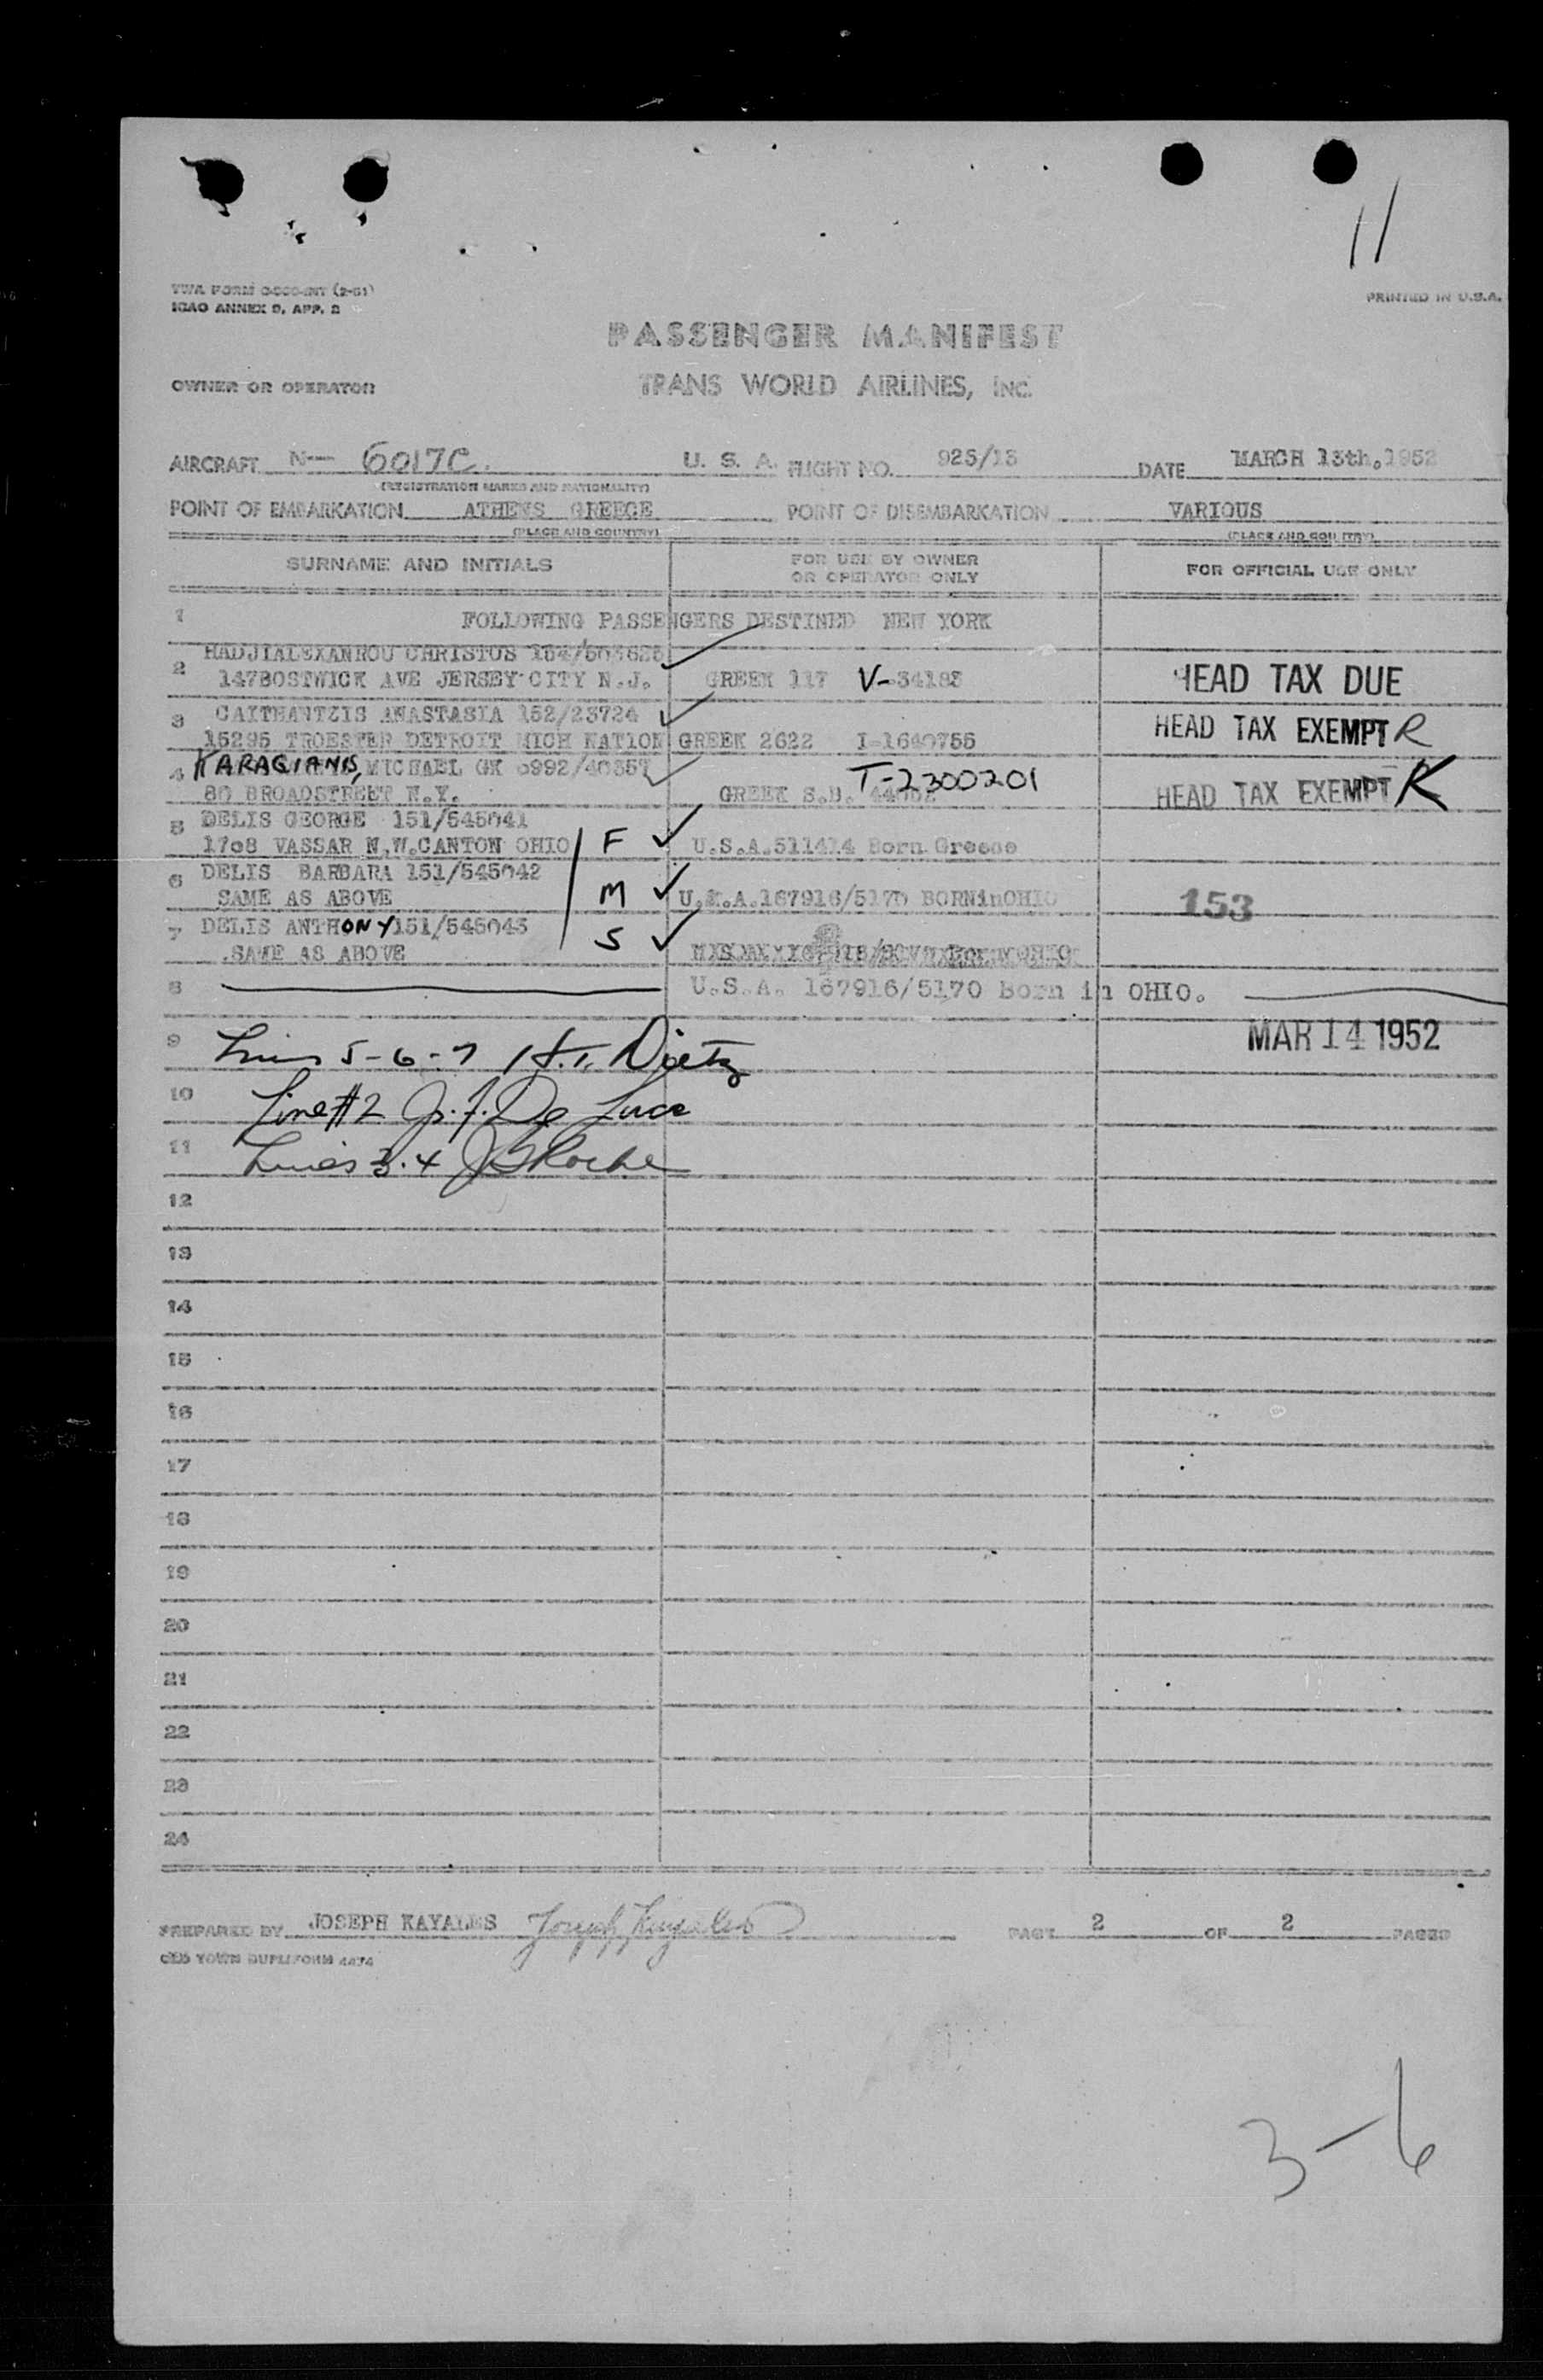 11
TWA FORM
ICAO ANNEX 9, APP. 2
PRINTED IN U.S.A.
PASSENGER MANIFEST
OWNER OR OPERATOR TRANS WORLD AIRLINES, INC.
AIRCRAFT N— 6017C. U. S. A. FLIGHT NO. 925/13 DATE MARCH 13th, 1952
(REGISTRATION MARKS AND NATIONALITY)
POINT OF EMBARKATION ATHENS GREECE POINT OF DISEMBARKATION VARIOUS
(PLACE AND COUNTRY) (PLACE AND COUNTRY)
SURNAME AND INITIALS FOR USE BY OWNER OR OPERATOR ONLY FOR OFFICIAL USE ONLY
1 FOLLOWING PASSENGERS DESTINED NEW YORK
HADJIALEXANROU CHRISTOS
2 147BOSTWICK AVE JERSEY CITY N.J. GREEK 117 V-34183 HEAD TAX DUE
3 CAITHANTZIS ANASTASIA 152/23724
15295 TROESTER DETROIT MICH NATION GREEK 2622 I-1640755 HEAD TAX EXEMPT R
4 KARAGIANIS, MICHAEL GK T-2300201
80 BROADSTREET N.Y. GREEK HEAD TAX EXEMPT R
5 DELIS GEORGE 151/545041
1708 VASSAR N.W.CANTON OHIO F U.S.A.511414 Born Greece
6 DELIS BARBARA 151/545042
SAME AS ABOVE M 167916/5170 BORNinOHIO 153
7 DELIS ANTHONY 151/545043
.SAME AS ABOVE S
8 U.S.A. 167916/5170 Born in OHIO.
MAR 14 1952
9 Lines 5-6-7 Dietz
10 Line #2 De Luca
11 Lines 3.4 Roche
12
13
14
15
16
17
18
19
20
21
22
23
24
PREPARED BY JOSEPH KAYALES Joseph Kayales PAGE 2 OF 2 PAGES
3-6